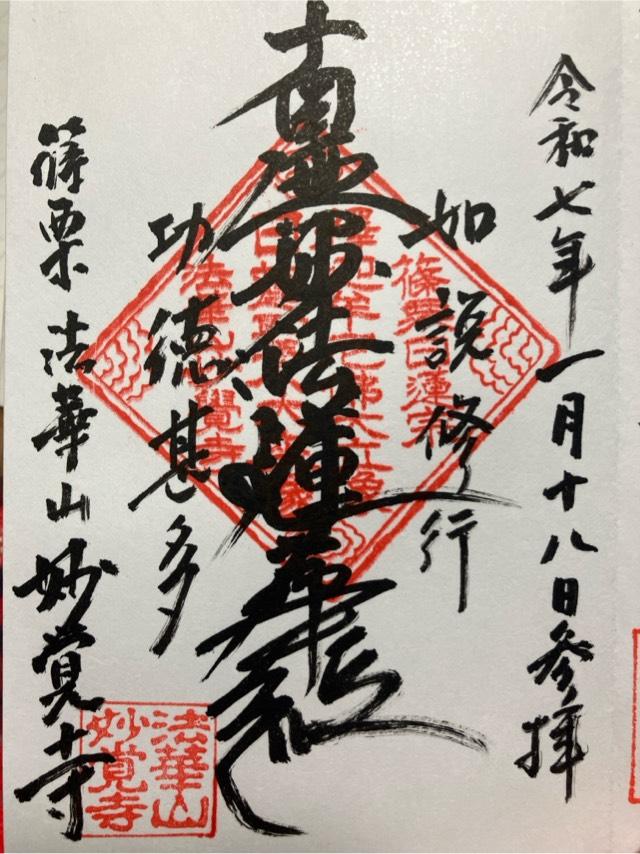 令和七年一月十八日参拝
如説修行
南無妙法蓮華経
功徳甚多
篠栗 法華山 妙覚寺
篠栗日蓮宗
法華山
妙覚寺